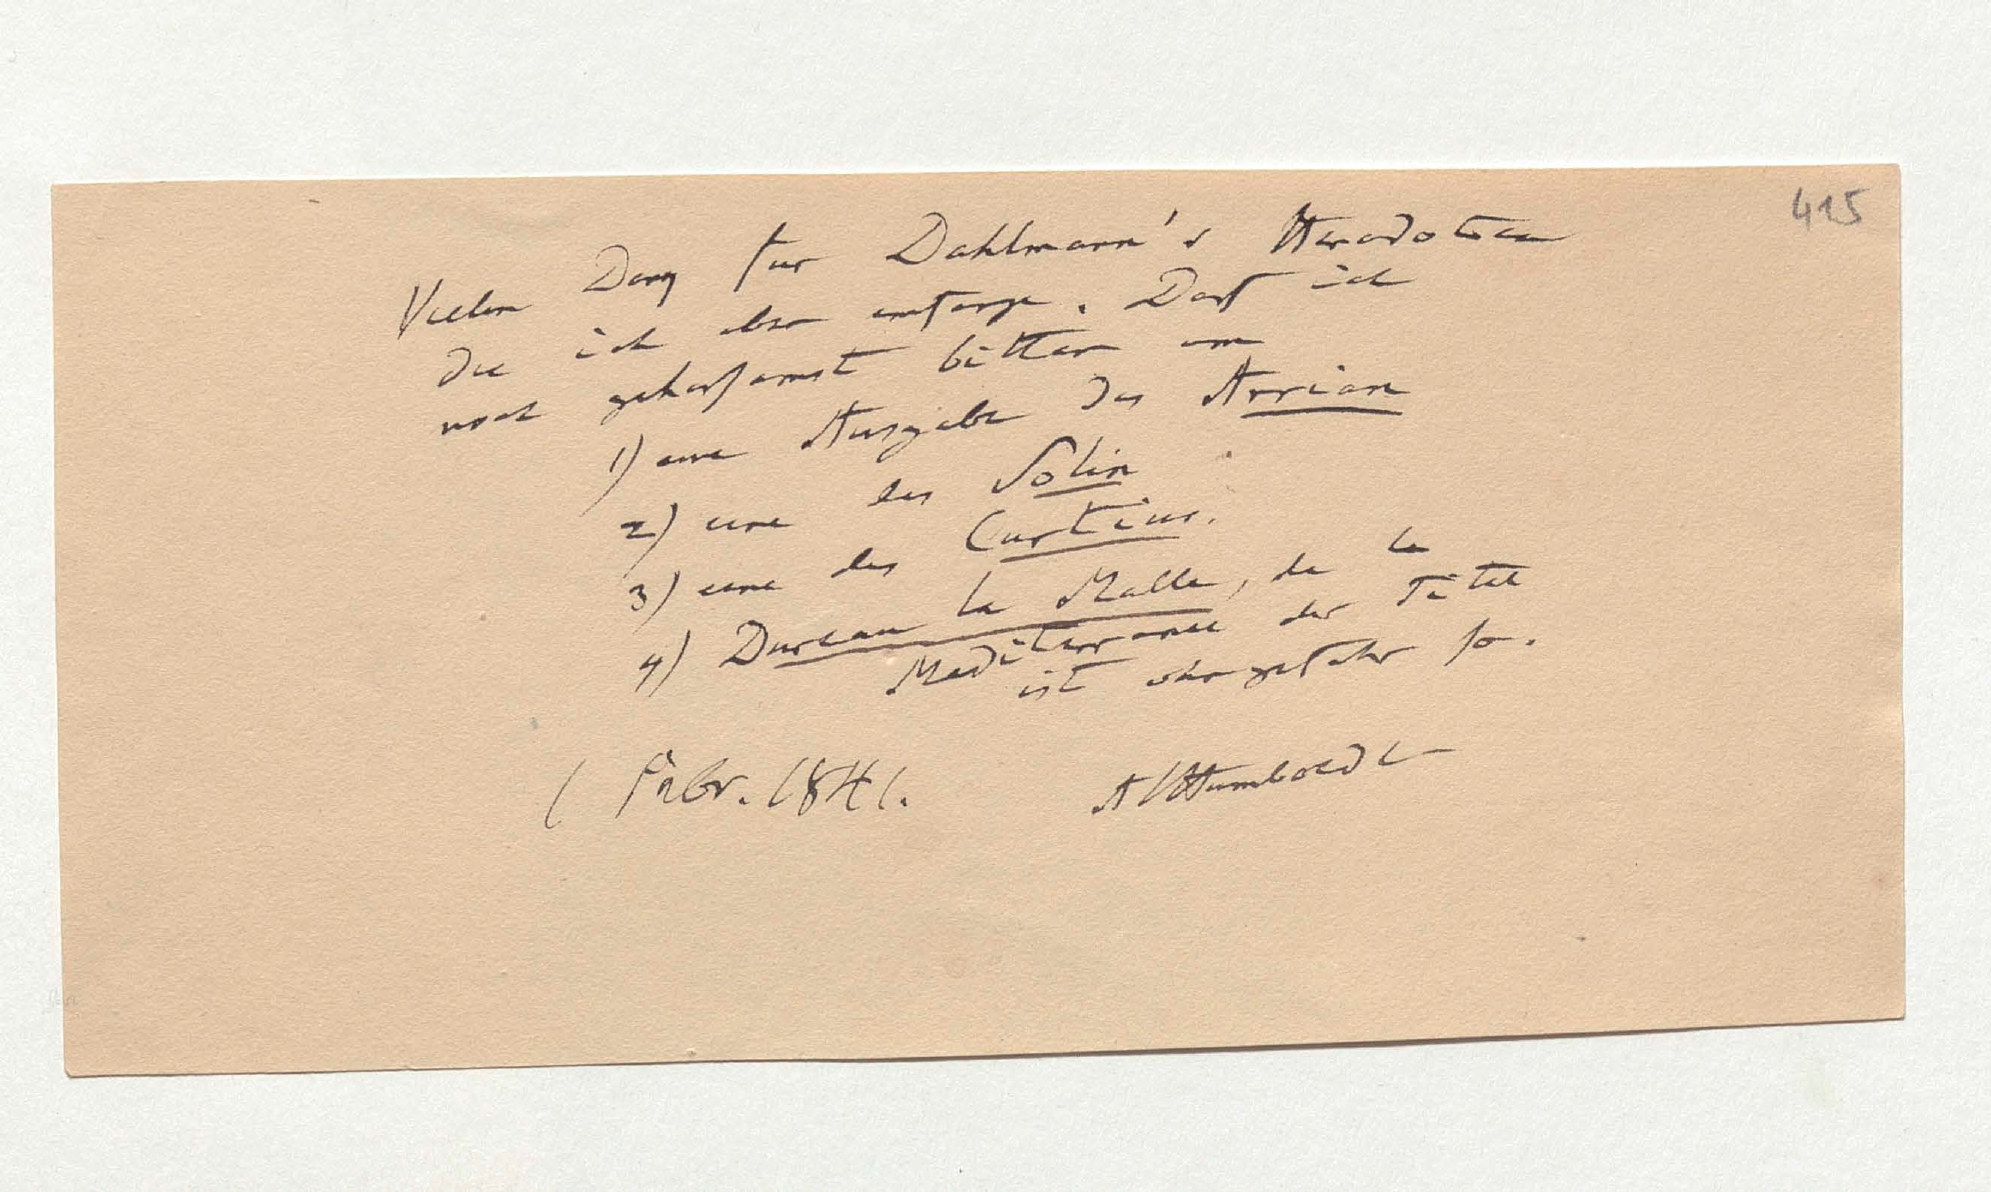 415
Vielen Dank für Dahlmann's Herodotea
die ich eben empfange. Darf ich
noch gehorsamst bitten um
1) eine Ausgabe des Arrian
2) eine des Solin
3) eine des Curtius.
4) Dureau la Malle, de la
Mediterranee der Titel
ist ohngefähr so.
1 Febr. 1841. AvHumboldt